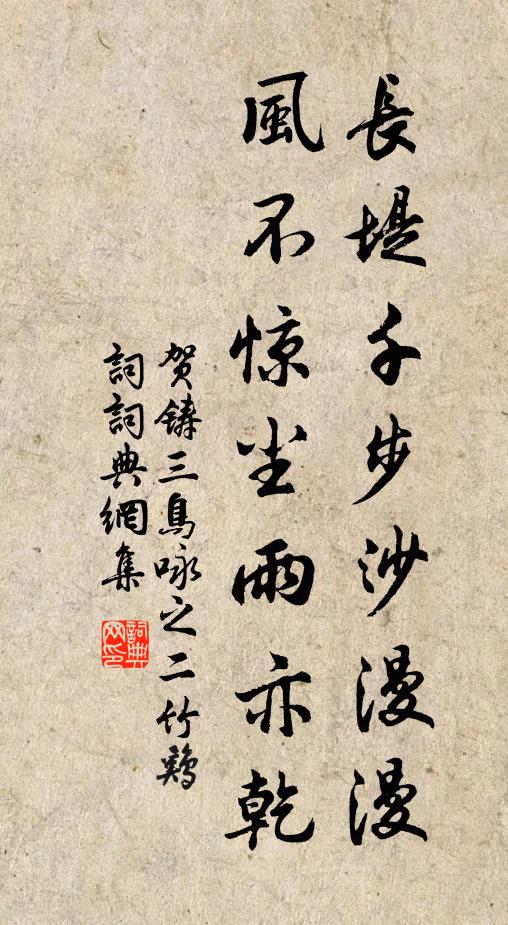 長堤千步沙漫漫
風不惊尘雨亦乾
贺铸三鳥咏之二竹鷄
詞詞典網集
詞典网印